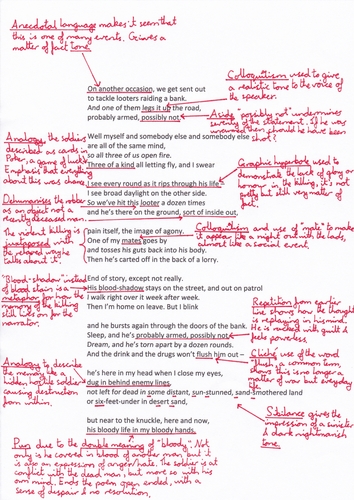 Anecdotal language makes it seem that
this is one of many events. Gives a
matter of fact tone.
On another occasion, we get sent out
to tackle looters raiding a bank.
And one of them legs it up the road,
probably armed, possibly not.
Colloquitism used to give
a realistic tone to the voice of
the speaker.
Aside "possibly not" undermines
severity of the statement. If he was
unarmed then should he have been
shot?
Well myself and somebody else and somebody else
are all of the same mind,
so all three of us open fire.
Three of a kind all letting fly, and I swear
Analogy, the soldiers
described as cards in
Poker, a game of luck.
Emphasis that everything
about this was chance.
I see every round as it rips through his life
I see broad daylight on the other side.
So we've hit this looter a dozen times
and he's there on the ground, sort of inside out,
Graphic hyperbole used to
demonstrate the lack of glory or
honour in the killing, it's not
pretty but still very matter of
fact.
Dehumanises the robber
as an object not a
recently deceased man.
The violent killing is
juxtaposed with
the relaxed way he
talks about it.
pain itself, the image of agony.
One of my mates goes by
and tosses his guts back into his body.
Then he's carted off in the back of a lorry.
Colloquitism and use of "mate" to make
it appear like a night out with the lads,
almost like a social event.
"Blood-shadow" instead
of blood stain is a
metaphor for how the
memory of the killing
still lies on for the
narrator.
End of story, except not really.
His blood-shadow stays on the street, and out on patrol
I walk right over it week after week.
Then I'm home on leave. But I blink
Repetition from earlier
line shows how the thought
is replaying in his mind.
He is racked with guilt &
feels powerless.
and he bursts again through the doors of the bank.
Sleep, and he's probably armed, possibly not.
Dream, and he's torn apart by a dozen rounds.
And the drink and the drugs won't flush him out –
Cliché use of the word
"flush" a common term
shows this is no longer a
matter of war but everyday
life.
Analogy to describe
the memory like a
hidden hostile soldier
causing destruction
from within.
he's here in my head when I close my eyes,
dug in behind enemy lines,
not left for dead in some distant, sun-stunned, sand-smothered land
or six-feet-under in desert sand,
Sibilance gives the
impression of a sinister
& dark nightmarish
tone.
but near to the knuckle, here and now,
his bloody life in my bloody hands.
Pun due to the double meaning of "bloody". Not
only is he covered in blood of another man, but it
is also an expression of anger/hate. The soldier is at
conflict with the dead man, but more so with his
own mind. Ends the poem open ended, with a
sense of despair & no resolution.